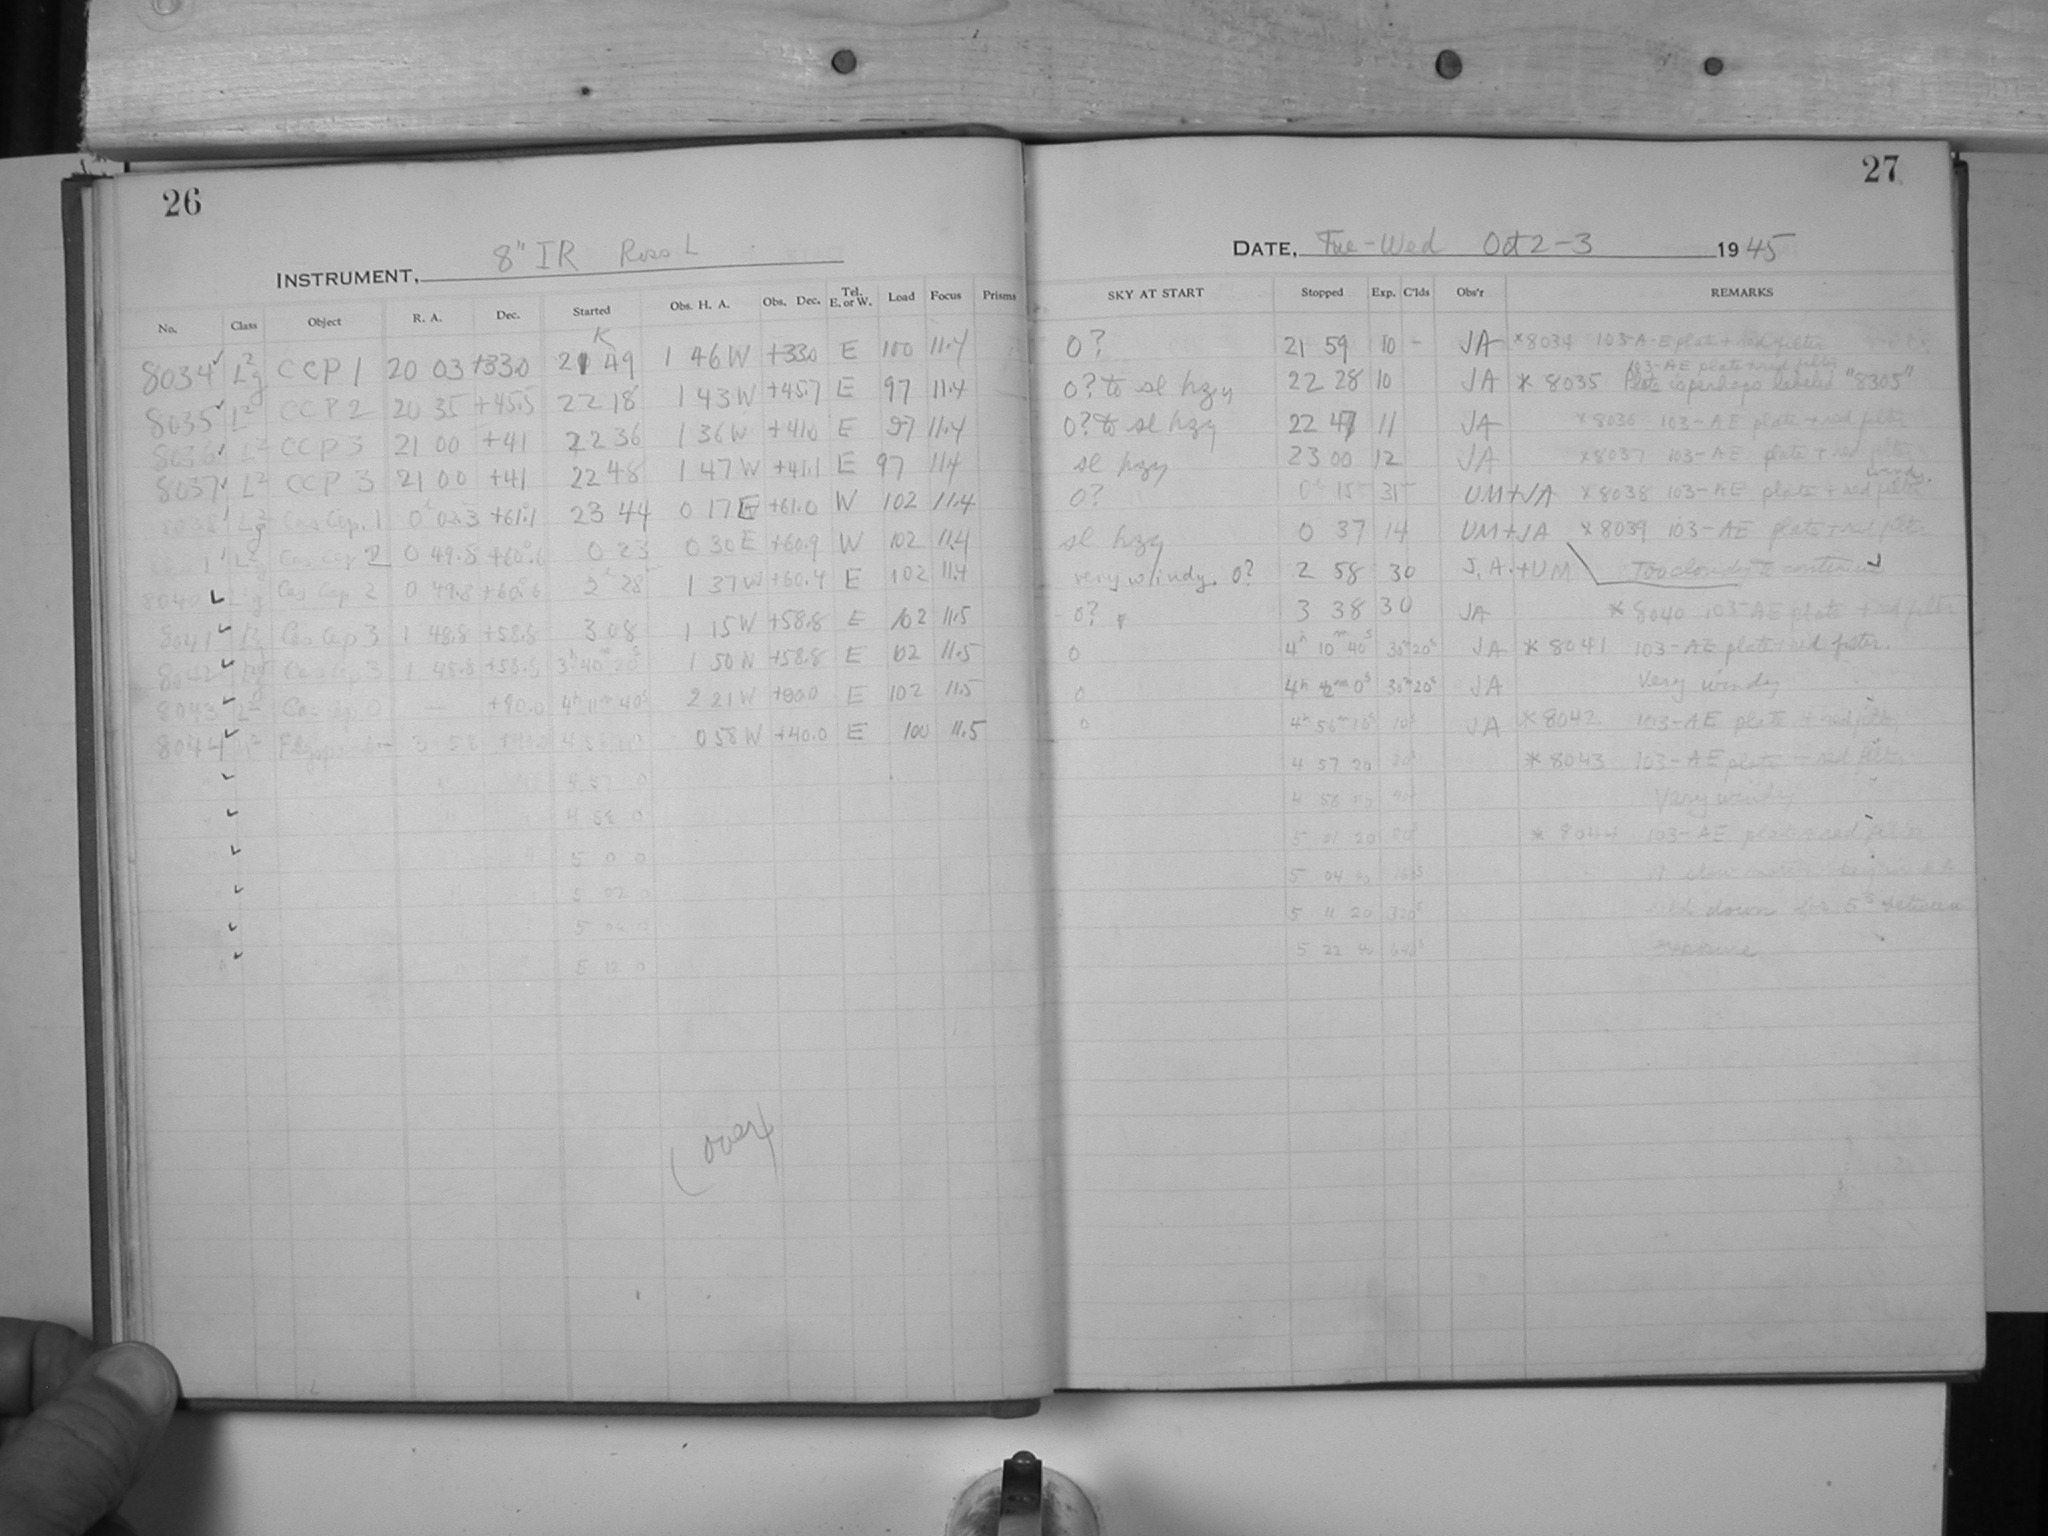 26
INSTRUMENT, 8" IR Ross L
No. Class Object R. A. Dec. Started Obs. H. A. Obs. Dec. Tel. E. or W. Load Focus Prisms
8034 L²g CCP 1 20 03 +33.0 21 49 1 46 W +33.0 E 100 11.4
8035 L² CCP 2 20 35 +45.5 22 18 1 43 W +45.7 E 97 11.4
8036 L² CCP 3 21 00 +41 22 36 1 36 W +41.0 E 97 11.4
8037 L² CCP 3 21 00 +41 22 48 1 47 W +41.1 E 97 11.4
8038 L²g Cas Cep. 1 0 02.3 +61.1 23 44 0 17 E +61.0 W 102 11.4
Cas Cep 2 0 49.8 +60.6 0 23 0 30 E +60.9 W 102 11.4
8040 L²g Cas Cep 2 0 49.8 +60.6 2 28 1 37 W +60.4 E 102 11.4
8041 Cas Cep 3 1 48.8 +58.8 3 08 1 15 W +58.8 E 102 11.5
8042 Cas Cep 3 1 48.8 +58.8 3ʰ 40ᵐ 20ˢ 1 50 W +58.8 E 102 11.5
8043 Cas Cep 0 — +90.0 4ʰ 11ᵐ 40ˢ 2 21 W +90.0 E 102 11.5
8044 3 58 0 58 W +40.0 E 100 11.5
4 57 0
4 58 0
5 0 0
5 02 0
5 12 0
(over)
27
DATE, Tue-Wed Oct 2-3 1945
SKY AT START Stopped Exp. C'lds Obs'r REMARKS
0? 21 59 10 - JA *8034 103-A-E plate + red filter
103-AE plate + red filter
0? to sl hzy 22 28 10 JA * 8035 Plate is perhaps labeled "8305"
0? to sl hzy 22 47 11 JA *8036 103-AE plate + red filter
sl hzy 23 00 12 JA *8037 103-AE plate + red filter
windy.
0? 0 15 31 UM+JA *8038 103-AE plate + red filter
sl hzy 0 37 14 UM+JA *8039 103-AE plate + red filter
very windy. 0? 2 58 30 J.A.+UM Too cloudy to continue
0? 3 38 30 JA *8040 103-AE plate + red filter
0 4ʰ 10ᵐ 40ˢ 30ᵐ20ˢ JA *8041 103-AE plate + red filter.
0 4ʰ 42ᵐ 0ˢ 30ᵐ20ˢ JA Very windy
0 4ʰ 56ᵐ 10ˢ 10ˢ JA *8042 103-AE plate + red filter
4 57 20 20ˢ *8043 103-AE plate + red filter
4 58 Very windy
5 01 20 80ˢ *8044 103-AE plate + red filter
5 04 slow
5 11 20 320ˢ down for 5ˢ between
5 22 640ˢ exposure